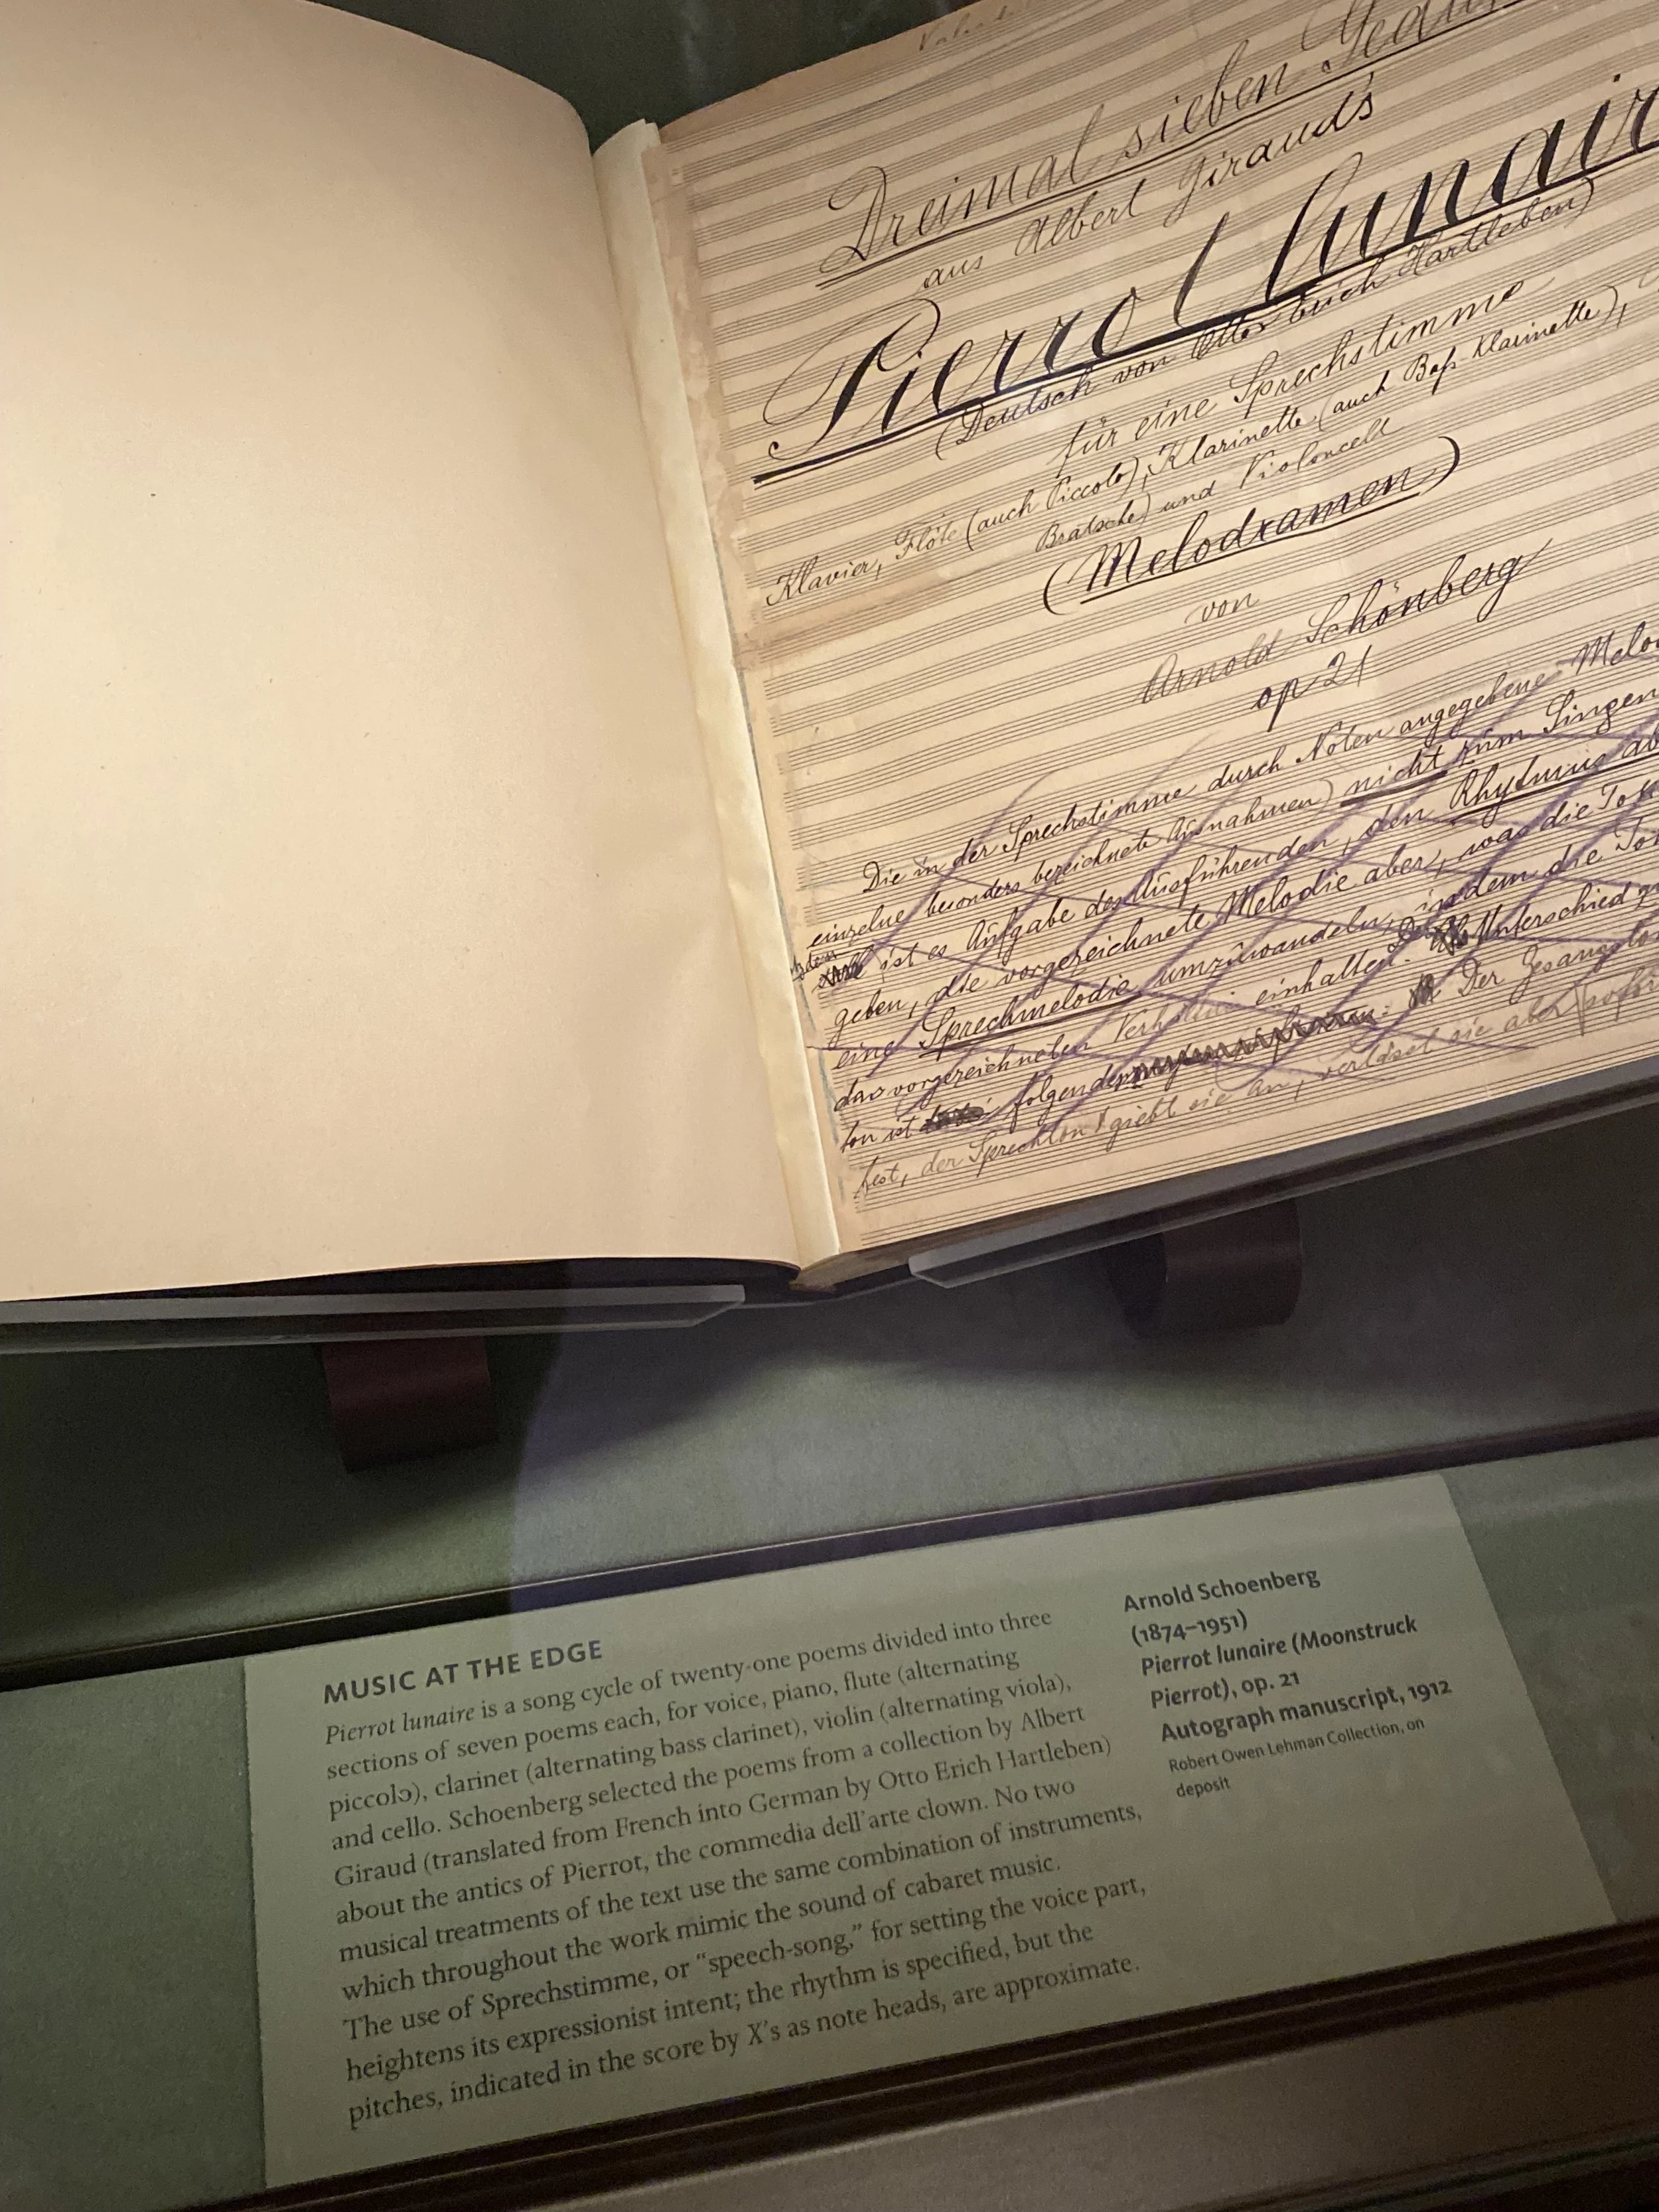 Dreimal sieben Gedi
aus Albert Giraud's
Pierrot lunair
(Deutsch von Otto Erich Hartleben)
für eine Sprechstimme
Klavier, Flöte (auch Piccolo), Klarinette (auch Baß-Klarinette),
Bratsche) und Violoncell
(Melodramen)
von
Arnold Schönberg
op 21
Die in der Sprechstimme durch Noten angegebene Melo
einzelne besonders bezeichnete Ausnahmen) nicht zum Singen
ist es Aufgabe des Ausführenden, den Rhythmus ab
geben, die vorgezeichnete Melodie aber, was die Ton
eine Sprechmelodie umzuwandeln, indem die Ton
das vorgezeichneten Verhältnis einhalten. Der Unterschied zw
ton ist folgender: Der Gesangston
fest, der Sprechton giebt sie an, verlässt sie aber sofor
MUSIC AT THE EDGE
Pierrot lunaire is a song cycle of twenty-one poems divided into three
sections of seven poems each, for voice, piano, flute (alternating
piccolo), clarinet (alternating bass clarinet), violin (alternating viola),
and cello. Schoenberg selected the poems from a collection by Albert
Giraud (translated from French into German by Otto Erich Hartleben)
about the antics of Pierrot, the commedia dell'arte clown. No two
musical treatments of the text use the same combination of instruments,
which throughout the work mimic the sound of cabaret music.
The use of Sprechstimme, or “speech-song,” for setting the voice part,
heightens its expressionist intent; the rhythm is specified, but the
pitches, indicated in the score by X's as note heads, are approximate.
Arnold Schoenberg
(1874–1951)
Pierrot lunaire (Moonstruck
Pierrot), op. 21
Autograph manuscript, 1912
Robert Owen Lehman Collection, on
deposit